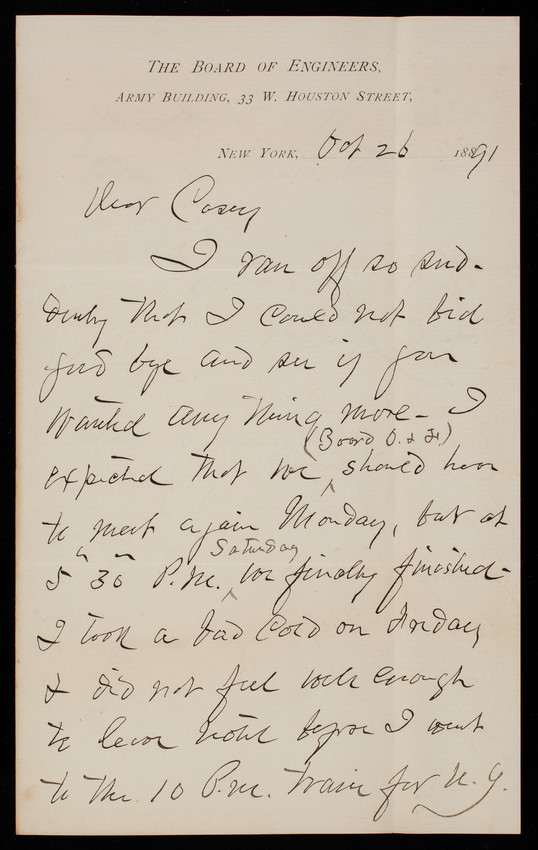 THE BOARD OF ENGINEERS,
ARMY BUILDING, 33 W. HOUSTON STREET,
NEW YORK, Oct 26 1891
Dear Casey
I ran off so sud-
denly that I could not bid
good bye and see if you
wanted any thing more - I
(Board O. & F.)
expected that we ^ should have
to meet again Monday, but at
Saturday
5h 30m P.M. ^ we finally finished -
I took a bad cold on Friday
& did not feel well enough
to leave hotel before I went
to the 10 P.M. train for N.Y.